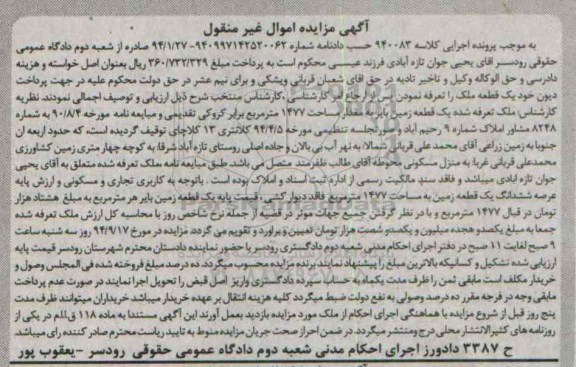 آگهی مزایده اموال غیر منقول
به موجب پرونده اجرایی کلاسه ۹۴۰۰۸۳ حسب دادنامه شماره ۹۴۰۹۹۷۱۴۲۵۲۰۰۶۲-۹۴/۱/۲۷ صادره از شعبه دوم دادگاه عمومی
حقوقی رودسر آقای یحیی جوان تازه آبادی فرزند عیسی محکوم است به پرداخت مبلغ ۳۶۰/۷۳۲/۳۲۹ ریال بعنوان اصل خواسته و هزینه
دادرسی و حق الوکاله وکیل و تاخیر تادیه در حق آقای شعبان قربانی ویشکی و برای نیم عشر در حق دولت محکوم علیه در جهت پرداخت
دیون خود یک قطعه ملک را تعرفه نمودن پس از ارجاع امر به کارشناسی ،کارشناس منتخب شرح ذیل ارزیابی و توصیف اجمالی نمودند. نظریه
کارشناس: ملک تعرفه شده یک قطعه زمین بایر به مقدار مساحت ۱۴۷۷ مترمربع برابر کروکی تقدیمی و مبایعه نامه مورخه ۹۰/۸/۴ به شماره
۸۲۴۸ مشاور املاک شماره ۹ رحیم آباد و صورتجلسه تنظیمی مورخه ۹۴/۴/۵ کلانتری ۱۳ کلاچای توقیف گردیده است، که حدود اربعه آن
جنوبا به زمین زراعی آقای محمد علی قربانی شمالا به نهر آب بی بالان و جاده اصلی روستای تازه آباد شرقا به کوچه چهار متری زمین کشاورزی
محمدعلی قربانی غربا به منزل مسکونی محوطه آقای طالب ظفرمند متصل می باشد. طبق مبایعه نامه ملک تعرفه شده متعلق به آقای یحیی
جوان تازه آبادی میباشد و فاقد سند مالکیت رسمی از اداره ثبت اسناد و املاک بوده است . باتوجه به کاربری تجاری و مسکونی و ارزش پایه
عرصه ششدانگ یک قطعه زمین به مساحت ۱۴۷۷ مترمربع فاقد دیوار کشی ، قیمت پایه یک قطعه زمین بایر هر مترمربع به مبلغ هشتاد هزار
تومان در قبال ۱۴۷۷ مترمربع و با در نظر گرفتن جمیع جهات موثر در قضیه از جمله نرخ شاخص روز با محاسبه کل ارزش ملک تعرفه شده
جمعا به مبلغ یکصدو هجده میلیون و یکصدو شصت هزار تومان تعیین و برآورد و تقویم می گردد. مزایده در مورخ ۹۴/۹/۱۷ روز سه شنبه ساعت
۹ صبح لغایت ۱۱ صبح در دفتر اجرای احکام مدنی شعبه دوم دادگستری رودسر با حضور نماینده دادستان محترم شهرستان رودسر قیمت پایه
ارزیابی شده تشکیل و کسانیکه بالاترین مبلغ را پیشنهاد نمایند برنده مزایده محسوب میگردد ده درصد مبلغ فروخته شده فی المجلس وصول و
خریدار مکلف است مابقی ثمن را ظرف مدت یکماه به حساب سپرده دادگستری واریز اصل قبض را تحویل اجرا نمایند در صورت عدم پرداخت
مابقی وجه در فرجه مقرر ده درصد وصولی به نفع دولت ضبط میگردد کلیه هزینه انتقال بر عهده خریدار میباشد خریداران میتوانند ظرف مدت
پنج روز قبل از شروع مزایده با هماهنگی اجرای احکام از ملک مورد مزایده بازدید بعمل آورند این آگهی مستندا به ماده ۱۱۸ ق.ا.م در یکی از
روزنامه های کثیرالانتشار محلی درج ومنتشر میگردد. در ضمن احراز صحت جریان مزایده منوط به تایید ریاست محترم صادر کننده رای میباشد
ح ۳۳۸۷ دادورز اجرای احکام مدنی شعبه دوم دادگاه عمومی حقوقی رودسر -یعقوب پور